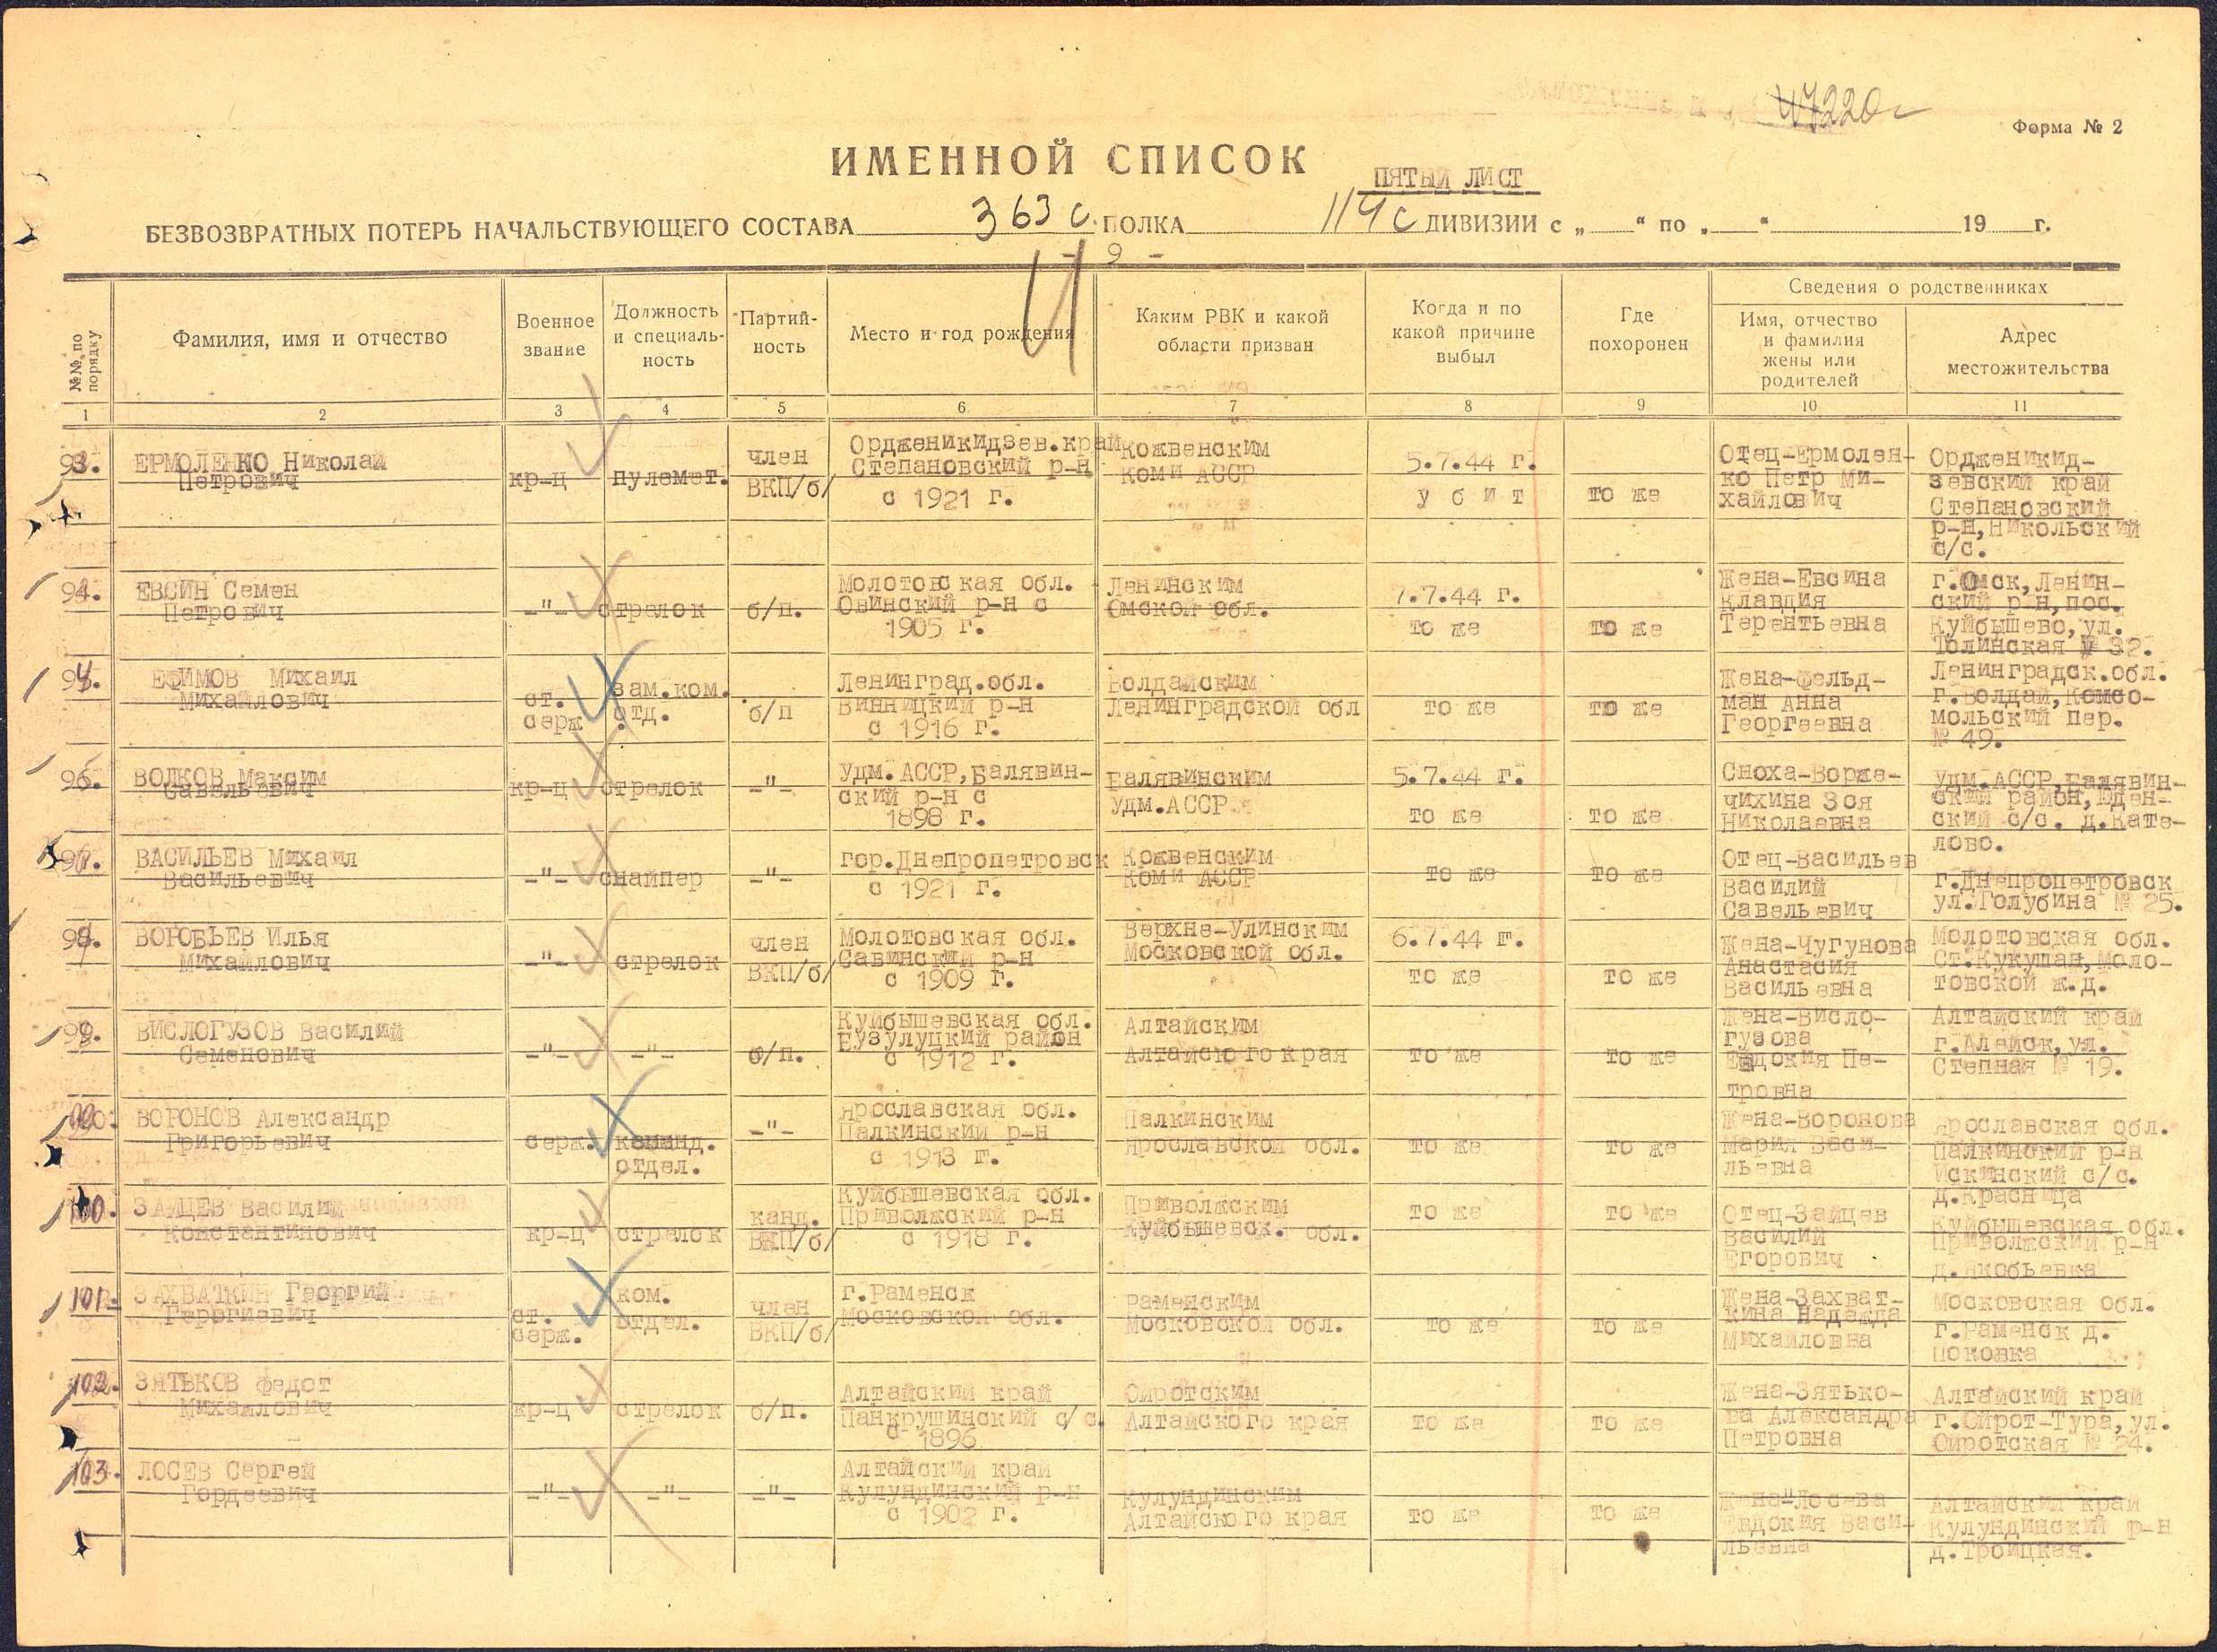 47220с
Форма № 2
ИМЕННОЙ СПИСОК
ПЯТЫЙ ЛИСТ
БЕЗВОЗВРАТНЫХ ПОТЕРЬ НАЧАЛЬСТВУЮЩЕГО СОСТАВА 363 с. ПОЛКА 114 с ДИВИЗИИ с „ “ по „ “ 19 г.
- 9 -
№№ по порядку
Фамилия, имя и отчество
Военное звание
Должность и специаль-ность
Партий-ность
Место и год рождения
Каким РВК и какой области призван
Когда и по какой причине выбыл
Где похоронен
Сведения о родственниках
Имя, отчество и фамилия жены или родителей
Адрес местожительства
1 2 3 4 5 6 7 8 9 10 11
93. ЕРМОЛЕНКО Николай
Петрович
кр-ц
пулемет.
член
ВКП/б/
Ордженикидзев.край
Степановский р-н
с 1921 г.
Кожвенским
Коми АССР
5.7.44 г.
у б и т
то же
Отец-Ермолен-
ко Петр Ми-
хайлович
Ордженикид-
зевский край
Степановский
р-н,Никольский
с/с.
94. ЕВСИН Семен
Петрович
-"-
стрелок
б/п.
Молотовская обл.
Овинский р-н с
1905 г.
Ленинским
Омской обл.
7.7.44 г.
то же
то же
Жена-Евсина
Клавдия
Терентьевна
г.Омск,Ленин-
ский р-н,пос.
Куйбышево,ул.
Толинская № 32.
ЕФИМОВ Михаил
Михайлович
ст.
серж
зам.ком.
отд.
б/п
Ленинград.обл.
Винницкий р-н
с 1916 г.
Волдайским
Ленинградской обл
то же
то же
Жена-Фельд-
ман Анна
Георгеевна
Ленинградск.обл.
г.Волдай,Комсо-
мольский пер.
№ 49.
ВОЛКОВ Максим
Савельевич
кр-ц
стрелок
-"-
Удм.АССР,Балявин-
ский р-н с
1898 г.
Балявинским
Удм.АССР
5.7.44 г.
то же
то же
Сноха-Ворже-
чихина Зоя
Николаевна
Удм.АССР,Балявин-
ский район,Юден-
ский с/с. д.Кате-
лово.
ВАСИЛЬЕВ Михаил
Васильевич
-"-
снайпер
-"-
гор.Днепропетровск
с 1921 г.
Кожвенским
Коми АССР
то же
то же
Отец-Васильев
Василий
Савельевич
г.Днепропетровск
ул.Голубина № 25.
ВОРОБЬЕВ Илья
Михайлович
-"-
стрелок
член
ВКП/б/
Молотовская обл.
Савинский р-н
с 1909 г.
Верхне-Улинским
Московской обл.
6.7.44 г.
то же
то же
Жена-Чугунова
Анастасия
Васильевна
Молотовская обл.
Ст.Кукушан,Моло-
товской ж.д.
ВИСЛОГУЗОВ Василий
Семенович
-"-
-"-
б/п.
Куйбышевская обл.
Бузулуцкий район
с 1912 г.
Алтайским
Алтайского края
то же
то же
Жена-Висло-
гузова
Евдокия Пе-
тровна
Алтайский край
г.Алейск,ул.
Степная № 19.
ВОРОНОВ Александр
Григорьевич
серж.
команд.
отдел.
-"-
Ярославская обл.
Палкинский р-н
с 1913 г.
Палкинским
Ярославской обл.
то же
то же
Жена-Воронова
Мария Васи-
льевна
Ярославская обл.
Палкинский р-н
Искинский с/с.
д.Красница
100. ЗАЙЦЕВ Василий
Константинович
кр-ц
стрелок
канд.
ВКП/б/
Куйбышевская обл.
Приволжский р-н
с 1918 г.
Приволжским
Куйбышевск. обл.
то же
то же
Отец-Зайцев
Василий
Егорович
Куйбышевская обл.
Приволжский р-н
д.Якобьевка
101. ЗАХВАТКИН Георгий
Герогиевич
ст.
серж.
ком.
отдел.
член
ВКП/б/
г.Раменск
Московской обл.
Раменским
Московской обл.
то же
то же
Жена-Захват-
кина Надежда
Михайловна
Московская обл.
г.Раменск д.
Поковка
102. ЗЯТЬКОВ Федот
Михайлович
кр-ц
стрелок
б/п.
Алтайский край
Панкрушинский с/с.
с 1896
Ойротским
Алтайского края
то же
то же
Жена-Зятько-
ва Александра
Петровна
Алтайский край
г.Ойрот-Тура,ул.
Ойротская № 24.
103. ЛОСЕВ Сергей
Гордеевич
-"-
-"-
-"-
Алтайский край
Кулундинский р-н
с 1902 г.
Кулундинским
Алтайского края
то же
то же
Жена-Лосева
Евдокия Васи-
льевна
Алтайский край
Кулундинский р-н
д.Троицкая.